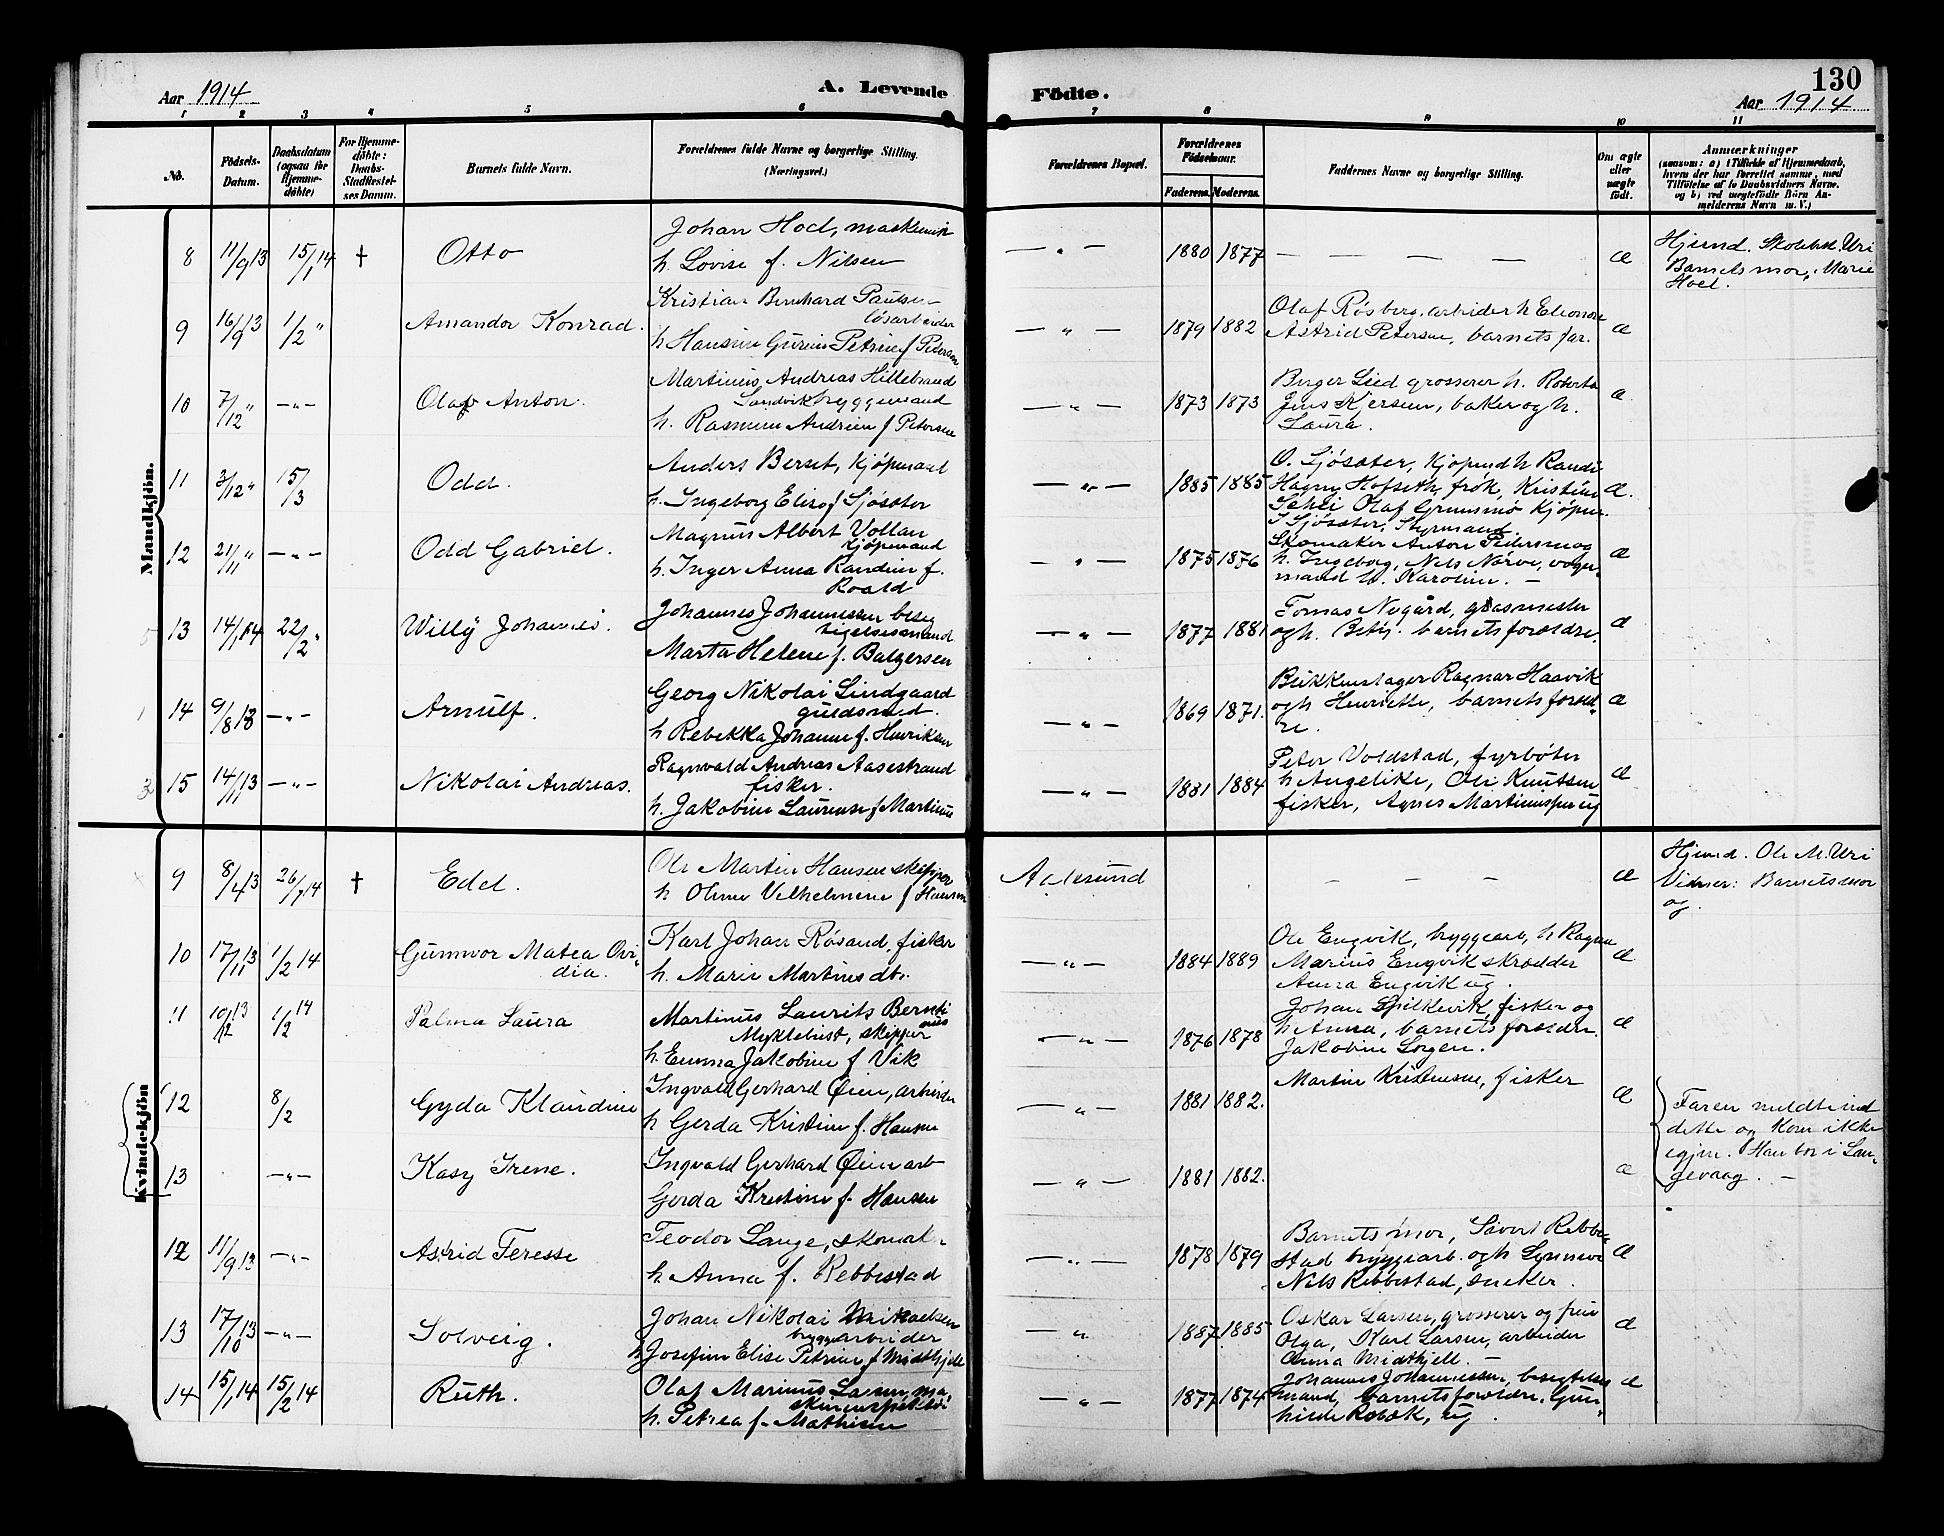 130
Aar 1914
A. Levende Födte.
Aar 1914
1 2 3 4 5 6 7 8 9 10 11
No.
Födsels-Datum.
Daabsdatum (ogsaa for Hjemmedöbte)
For Hjemmedöbte: Daabs-Stadfæstelses Datum.
Barnets fulde Navn.
Forældrenes fulde Navne og borgerlige Stilling. (Næringsvei.)
Forældrenes Bopæl.
Forældrenes Födselsaar.
Faderens. Moderens.
Faddernes Navne og borgerlige Stilling.
Om ægte eller uægte födt.
Anmærkninger
(saasom: a) i Tilfælde af Hjemmedaab, hvem der har forrettet samme, med Tilföielse af to Daabsvidners Navne, og b) ved uægtefödte Börn Anmelderens Navn m. V.)
Mandkjön.
8 11/9 13 15/1 14 † Otto
Johan Hoel, maskinin
h. Lovise f. Nilsen
— " — 1880 1877 — — — — æ
Hjemd. Skolebst. Uri
Barnets mor, Marie
Hoel.
9 16/9 13 1/2 " Amandor Konrad.
Kristian Bernhard Paulsen
løsarbeider
h. Hansine Gurine Petrine f Pedersen
— " — 1879 1882
Olaf Røsberg, arbeider h Eleonore
Astrid Petersen, barnets far.
æ
10 7/12 " — " — Olaf Anton.
Martinus Andreas Hillebrand
Sandvik bryggemand
h. Rasmine Andrine f Petersen
— " — 1873 1873
Berger Lied grosserer h. Roberta
Jens Kjersem, baker og h.
Laura.
æ
11 3/12 " 15/3 Odd.
Anders Berset, Kjøpmand
h. Ingeborg Elise f Sjøsæter
— " — 1885 1885
O. Sjøsæter, Kjøpmd h Randi
Hagny Hofseth, frøk, Kristine
Olaf Grimsmo Kjøpm.
Sjøsæter, Styrmand.
æ.
12 21/11 " — " — Odd Gabriel.
Magnus Albert Vollan
Kjøpmand
h. Inger Anna Randine f.
Roald
— " — 1875 1876
Skomaker Anton Pedersen og
h. Ingeborg, Nils Nørve, vogn-
mand h. Karoline. —
æ
13 14/1 14 22/2 " Willy Johannes.
Johannes Johannessen besig
tigelsesmand
Marta Helene f. Balgersen
— " — 1877 1881
Tomas Nygård, gasmester
og h. Betzy. barnets forældre.
æ
14 9/8 13 — " — Arnulf.
Georg Nikolai Lindgaard
guldsmed.
h Rebekka Johanne f. Henriksen
— " — 1869 1871.
Blikkenslager Ragnar Haavik
og h Henriette, barnets foræld-
re.
æ
15 14/11 13 — " — Nikolai Andreas.
Ragnvald Andreas Aasestrand
fisker.
h. Jakobine Laurense f Martinus
— " — 1881 1884
Peter Voldstad, fyrbøter
h Angelike, Ole Knutsen
fisker, Agnes Martinussen ug
æ
Kvindekjön
9 8/4 13 26/1 14 † Edel.
Ole Martin Hansen skipper
h. Oline Vilhelmine f Hansen
Aalesund — — — æ
Hjemd. Ole M. Uri
Vidner: Barnets mor
og.
10 17/11 13 1/2 14 Gunvor Matea Ovi-
dia.
Karl Johan Røsand, fisker
h. Marie Martinusdtr.
— " — 1884 1889
Ole Engvik, bryggearb, h Ragna
Marius Engvik skrædder
Anna Engvik ug.
æ
11 10/12 13 1/2 14 Palma Laura
Martinus Laurits Bernti
nus
Myklebust, skipper
h. Emma Jakobine f. Vik
— " — 1876 1878
Johan Spilkevik, fisker og
h Anna, barnets forældre.
Jakobine Sorgen.
æ
12 8/2 Gyda Klaudine
Ingvald Gerhard Øien, arbeider
h Gerda Kristine f. Hansen
— " — 1881 1882.
Martin Kristensen, fisker
æ
Faren meldte ind
dette og kom ikke
igjen. Han bor i Lan-
gevaag. —
13 — " — Kasy Irene.
Ingvald Gerhard Øien arb
Gerda Kristine f. Hansen
— " — 1881 1882.
æ
12 11/9 13 — " — Astrid Teresse
Teodor Lange, skomak.
h Anna f. Rebbestad
— " — 1878 1879
Barnets mor, Sivert Rebbe-
stad bryggearb. og h
Nils Rebbestad, snekker.
æ
13 17/10 13 — " — Solveig.
Johan Nikolai Mikaelsen
bryggearbeider
h Josefine Elise Petrine f Midthjell
— " — 1887 1885
Oskar Larsen, grosserer og frue
Olga, Karl Larsen, arbeider
Anna Midthjell. —
æ
14 15/1 14 15/2 14 Ruth.
Olaf Marinus Larsen, ma-
skininspektør
h. Petrea f. Mathisen
— " — 1877 1874
Johannes Johannessen, besigtelses
mand, barnets forældre, Gun-
hilde Robæk, ug.
æ